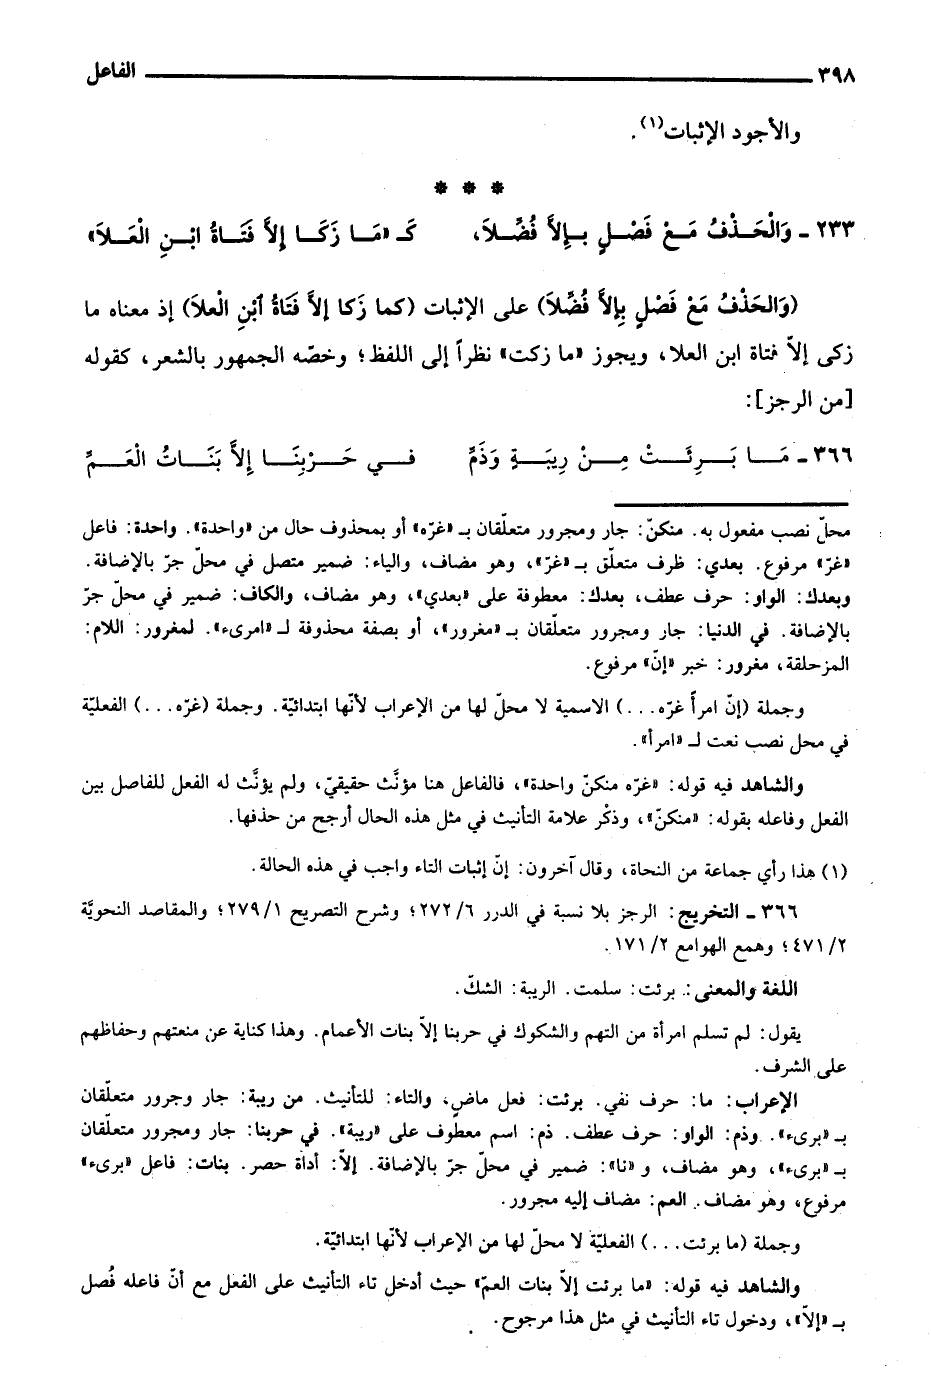 ٣٩٨ الفاعل
والأجود الإثبات(١).
* * *
٢٣٣ ـ وَالْحَــذْفُ مَــعْ فَصْــلٍ بــإِلاَّ فُضِّــلاَ، كَــ «مَــا زَكَــا إِلاَّ فَتَــاةُ ابْــنِ الْعَــلاَ»
(وَالحَذْفُ مَعْ فَصْلٍ بِإِلاَّ فُضِّلاَ) على الإثبات (كما زَكا إلاَّ فَتَاةُ ٱبْنِ الْعلاَ) إذ معناه ما
زكى إلاّ فتاة ابن العلا، ويجوز «ما زكت» نظراً إلى اللفظ؛ وخصّه الجمهور بالشعر، كقوله
[من الرجز]:
٣٦٦ ـ مَــا بَــرِئَــتْ مِــنْ رِيبَــةٍ وَذَمِّ فــي حَــرْبِنَــا إِلاَّ بَنَــاتُ الْعَــمِّ
محلّ نصب مفعول به. منكنّ: جار ومجرور متعلّقان بـ «غرّه» أو بمحذوف حال من «واحدة». واحدة: فاعل
«غرّ» مرفوع. بعدي: ظرف متعلّق بـ «غرّ»، وهو مضاف، والياء: ضمير متصل في محلّ جرّ بالإضافة.
وبعدك: الواو: حرف عطف، بعدك: معطوفة على «بعدي»، وهو مضاف، والكاف: ضمير في محلّ جرّ
بالإضافة. في الدنيا: جار ومجرور متعلّقان بـ «مغرور»، أو بصفة محذوفة لـ «امرىء». لمغرور: اللام:
المزحلقة، مغرور: خبر «إنّ» مرفوع.
وجملة (إنّ امرأً غرّه...) الاسمية لا محلّ لها من الإعراب لأنّها ابتدائيّة. وجملة (غرّه...) الفعليّة
في محل نصب نعت لـ «امرأ».
والشاهد فيه قوله: «غرّه منكنّ واحدة»، فالفاعل هنا مؤنَّث حقيقيّ، ولم يؤنَّث له الفعل للفاصل بين
الفعل وفاعله بقوله: «منكنّ»، وذكْر علامة التأنيث في مثل هذه الحال أرجح من حذفها.
(١) هذا رأي جماعة من النحاة، وقال آخرون: إنّ إثبات التاء واجب في هذه الحالة.
٣٦٦ ـ التخريج: الرجز بلا نسبة في الدرر ٦/ ٢٧٢؛ وشرح التصريح ١/ ٢٧٩؛ والمقاصد النحويَّة
٢/ ٤٧١؛ وهمع الهوامع ٢/ ١٧١.
اللغة والمعنى: برئت: سلمت. الريبة: الشكّ.
يقول: لم تسلم امرأة من التهم والشكوك في حربنا إلاّ بنات الأعمام. وهذا كناية عن منعتهم وحفاظهم
على الشرف.
الإعراب: ما: حرف نفي. برئت: فعل ماضٍ، والتاء: للتأنيث. من ريبة: جار وجرور متعلّقان
بـ «برىء». وذم: الواو: حرف عطف. ذم: اسم معطوف على «ريبة». في حربنا: جار ومجرور متعلّقان
بـ «برىء»، وهو مضاف، و «نا»: ضمير في محلّ جرّ بالإضافة. إلاّ: أداة حصر. بنات: فاعل «برىء»
مرفوع، وهو مضاف. العم: مضاف إليه مجرور.
وجملة (ما برئت...) الفعليّة لا محلّ لها من الإعراب لأنّها ابتدائيّة.
والشاهد فيه قوله: «ما برئت إلاّ بنات العمّ» حيث أدخل تاء التأنيث على الفعل مع أنّ فاعله فُصل
بـ «إلاّ»، ودخول تاء التأنيث في مثل هذا مرجوح.